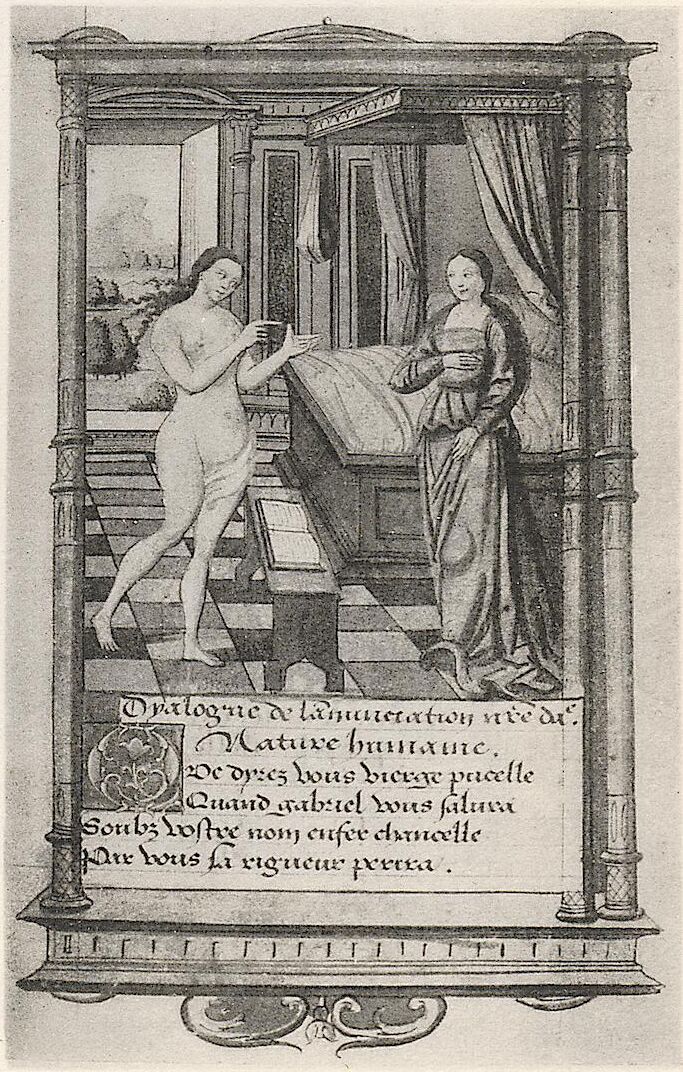 Dyalogue de lãnunciation nr̃e daᵉ.
Nature humaine.
Ve dyrez vous vierge pucelle
Quand gabriel vous salura
Soubz vostre nom enfer chancelle
Par vous sa rigueur perira.